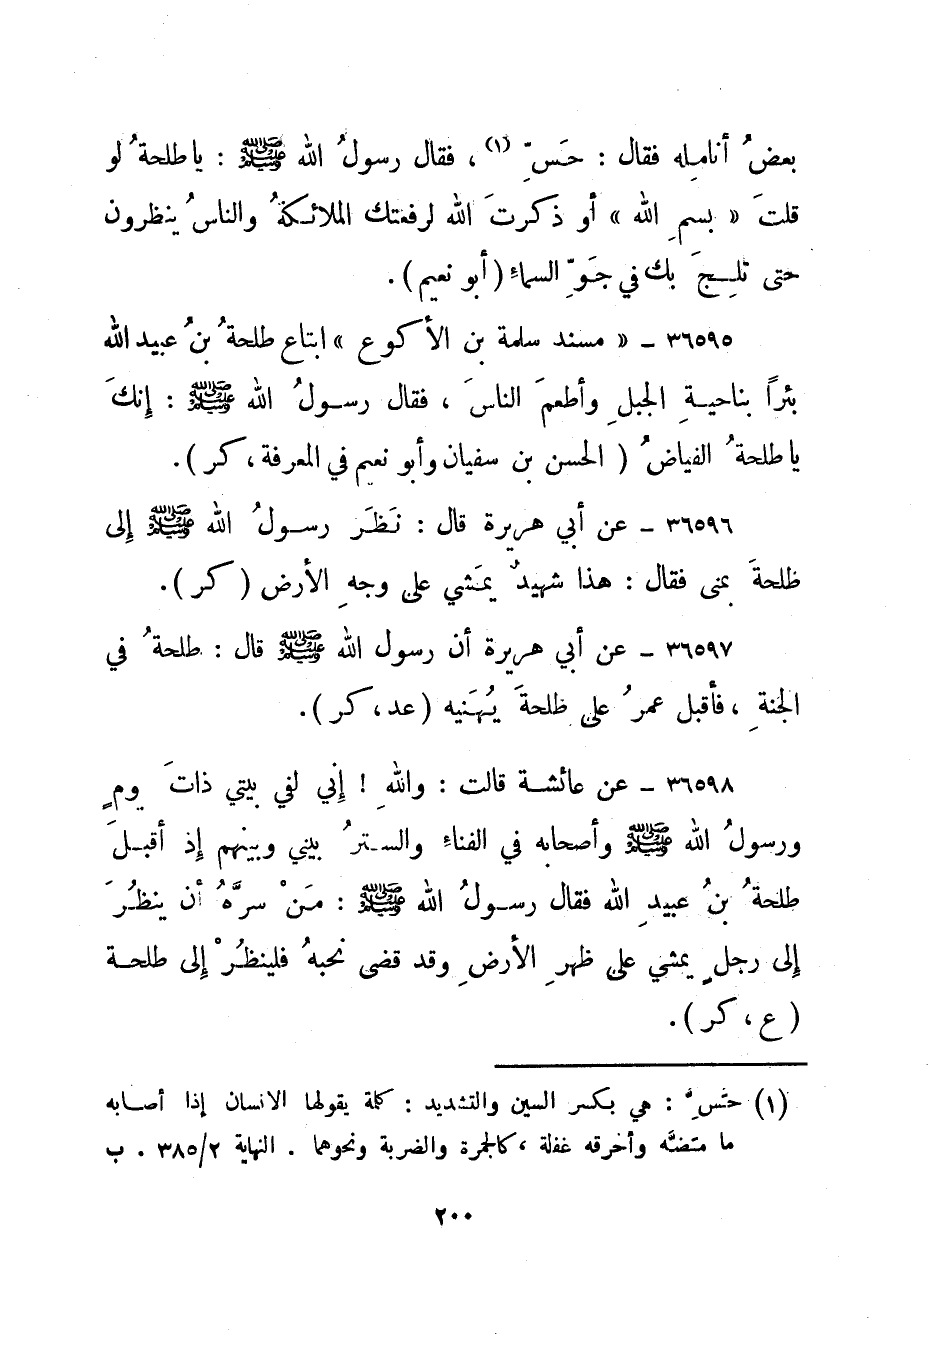 بعضُ أنامله فقال : حَسِّ (١) ، فقال رسولُ الله ﷺ : يا طلحةُ لو
قلتَ « بسمِ الله » أو ذكرتَ الله لرفعتك الملائكةُ والناسُ ينظرون
حتى تلِجَ بك في جَوِّ السماء ( أبو نعيم ) .
٣٦٥٩٥ ـ « مسند سلمة بن الأكوع » ابتاع طلحةُ بنُ عبيد الله
بئراً بناحيةِ الجبلِ وأطعمَ الناسَ ، فقال رسولُ الله ﷺ : إنكَ
يا طلحةُ الفياضُ ( الحسن بن سفيان وأبو نعيم في المعرفة ، كر ) .
٣٦٥٩٦ ـ عن أبي هريرة قال : نَظَرَ رسولُ الله ﷺ إلى
طلحةَ بمنى فقال : هذا شهيدٌ يمَشي على وجهِ الأرض ( كر ) .
٣٦٥٩٧ ـ عن أبي هريرة أن رسول الله ﷺ قال : طلحةُ في
الجنةِ ، فأقبل عمرُ على طلحةَ يُهَنيه ( عد ، كر ) .
٣٦٥٩٨ ـ عن عائشة قالت : واللهِ ! إني لفي بيتي ذاتَ يومٍ
ورسولُ الله ﷺ وأصحابه في الفناء والسترُ بيني وبينهم إذ أقبلَ
طلحةُ بنُ عبيدِ الله فقال رسولُ الله ﷺ : مَنْ سرَّهُ أن ينظُرَ
إلى رجلٍ يمشي على ظهرِ الأرضِ وقد قضى نحبهُ فلينظُرْ إلى طلحة
( ع ، كر ) .
(١) حَسِّ : هي بكسر السين والتشديد : كلمة يقولها الانسان إذا أصابه
ما مَضَّه وأحرقه غفلة ، كالجمرة والضربة ونحوهما . النهاية ٣٨٥/٢ . ب
٢٠٠